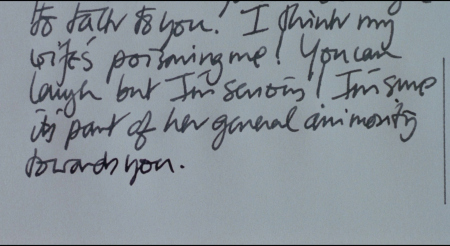 to talk to you! I think my
wife's poisoning me! You can
laugh but I'm serious! I'm sure
its part of her general animosity
towards you.